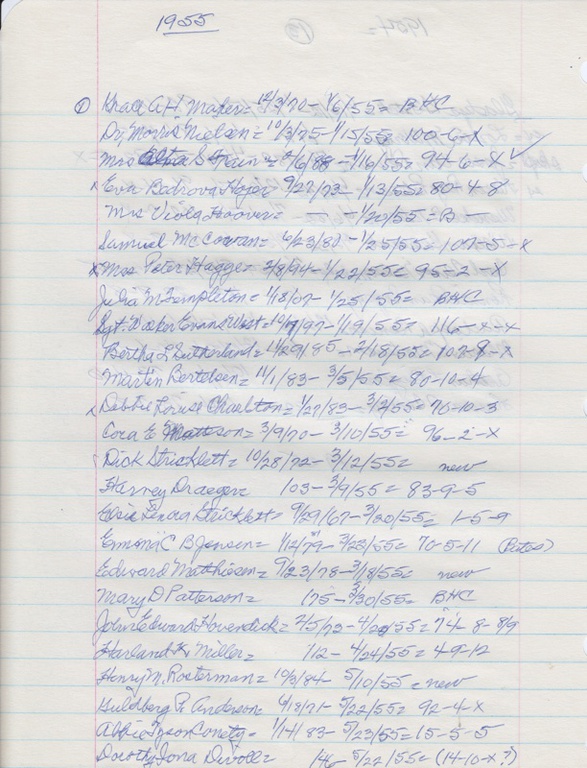 1955
① A H Mader = 12/3/70 - 1/6/55 = BHC
Dr. Morris Nielsen = 10/3/75 - 1/15/55 = 100-6-X
Mrs S. = /6/88 - 1/16/55 = 94-6-X ✓
x Eva = 9/27/73 - 1/13/55 = 80-4-8
Mrs Viola Hoover = - 1/20/55 = B -
Samuel McCowan = 6/23/80 - 1/25/55 = 107-5-X
x Mrs Peter Hagge = 2/8/94 - 1/22/55 = 95-2-X
Julia M Templeton = 1/18/07 - 1/25/55 = BHC
Sgt. Evans West = 10/ /97 - 1/19/55 = 116-x-x
Bertha L Sutherland = 11/29/85 - 2/18/55 = 107-8-X
Martin Bertelsen = 11/1/83 - 3/5/55 = 80-10-4
x Debbie Louise Charlton = 1/27/83 - 3/2/55 = 70-10-3
Cora E Matteson = 3/9/70 - 3/10/55 = 96-2-X
Dick Stricklett = 10/28/72 - 3/12/55 = new
Harvey Draeger = 103 - 3/9/55 = 83-9-5
Elsie Lenora Stricklett = 9/29/67 - 3/20/55 = 1-5-9
Emma C B Jensen = 1/12/79 - 3/23/55 = 70-5-11
Edward Mathisen = 9/23/78 - 3/18/55 = new
Mary D Patterson = 175 - 3/30/55 = BHC
John Edward Hovendick = 2/5/73 - 4/20/55 = 74-8-8/9
Harland K. Miller = 112 - 4/24/55 = 49-12
Henry M. Rosterman = 10/3/84 - 5/10/55 = new
Guldberg P. Anderson = 4/18/71 - 5/22/55 = 92-4-X
Abbie Tyson Conety = 1/14/83 - 5/23/55 = 15-5-5
Dorothy Iona = 146 - 5/22/55 = (14-10-x?)